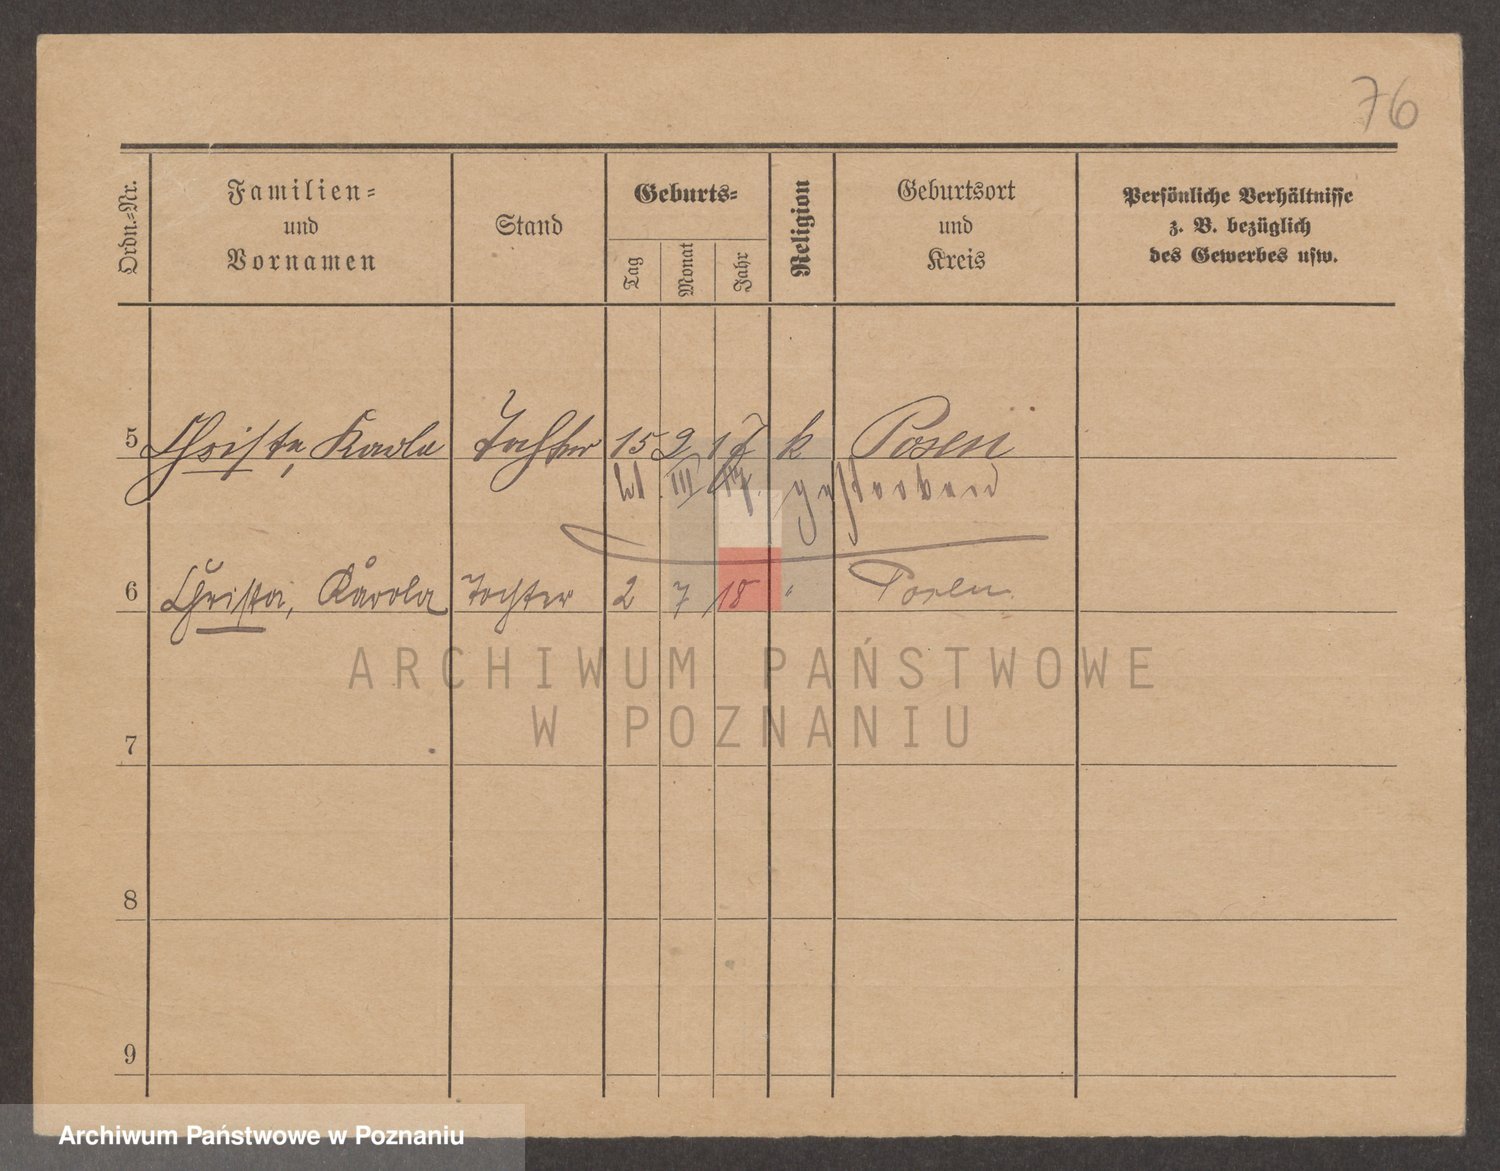 76
Ordn.-Nr.
Familien-
und
Vornamen
Stand
Geburts-
Tag
Monat
Jahr
Religion
Geburtsort
und
Kreis
Persönliche Verhältnisse
z. B. bezüglich
des Gewerbes usw.
5 Christa, Karla Tochter 15 9 17 k Posen
III 17. gestorben
6 Christa, Karola Tochter 2 7 18 " Posen
ARCHIWUM PAŃSTWOWE
W POZNANIU
7
8
9
Archiwum Państwowe w Poznaniu